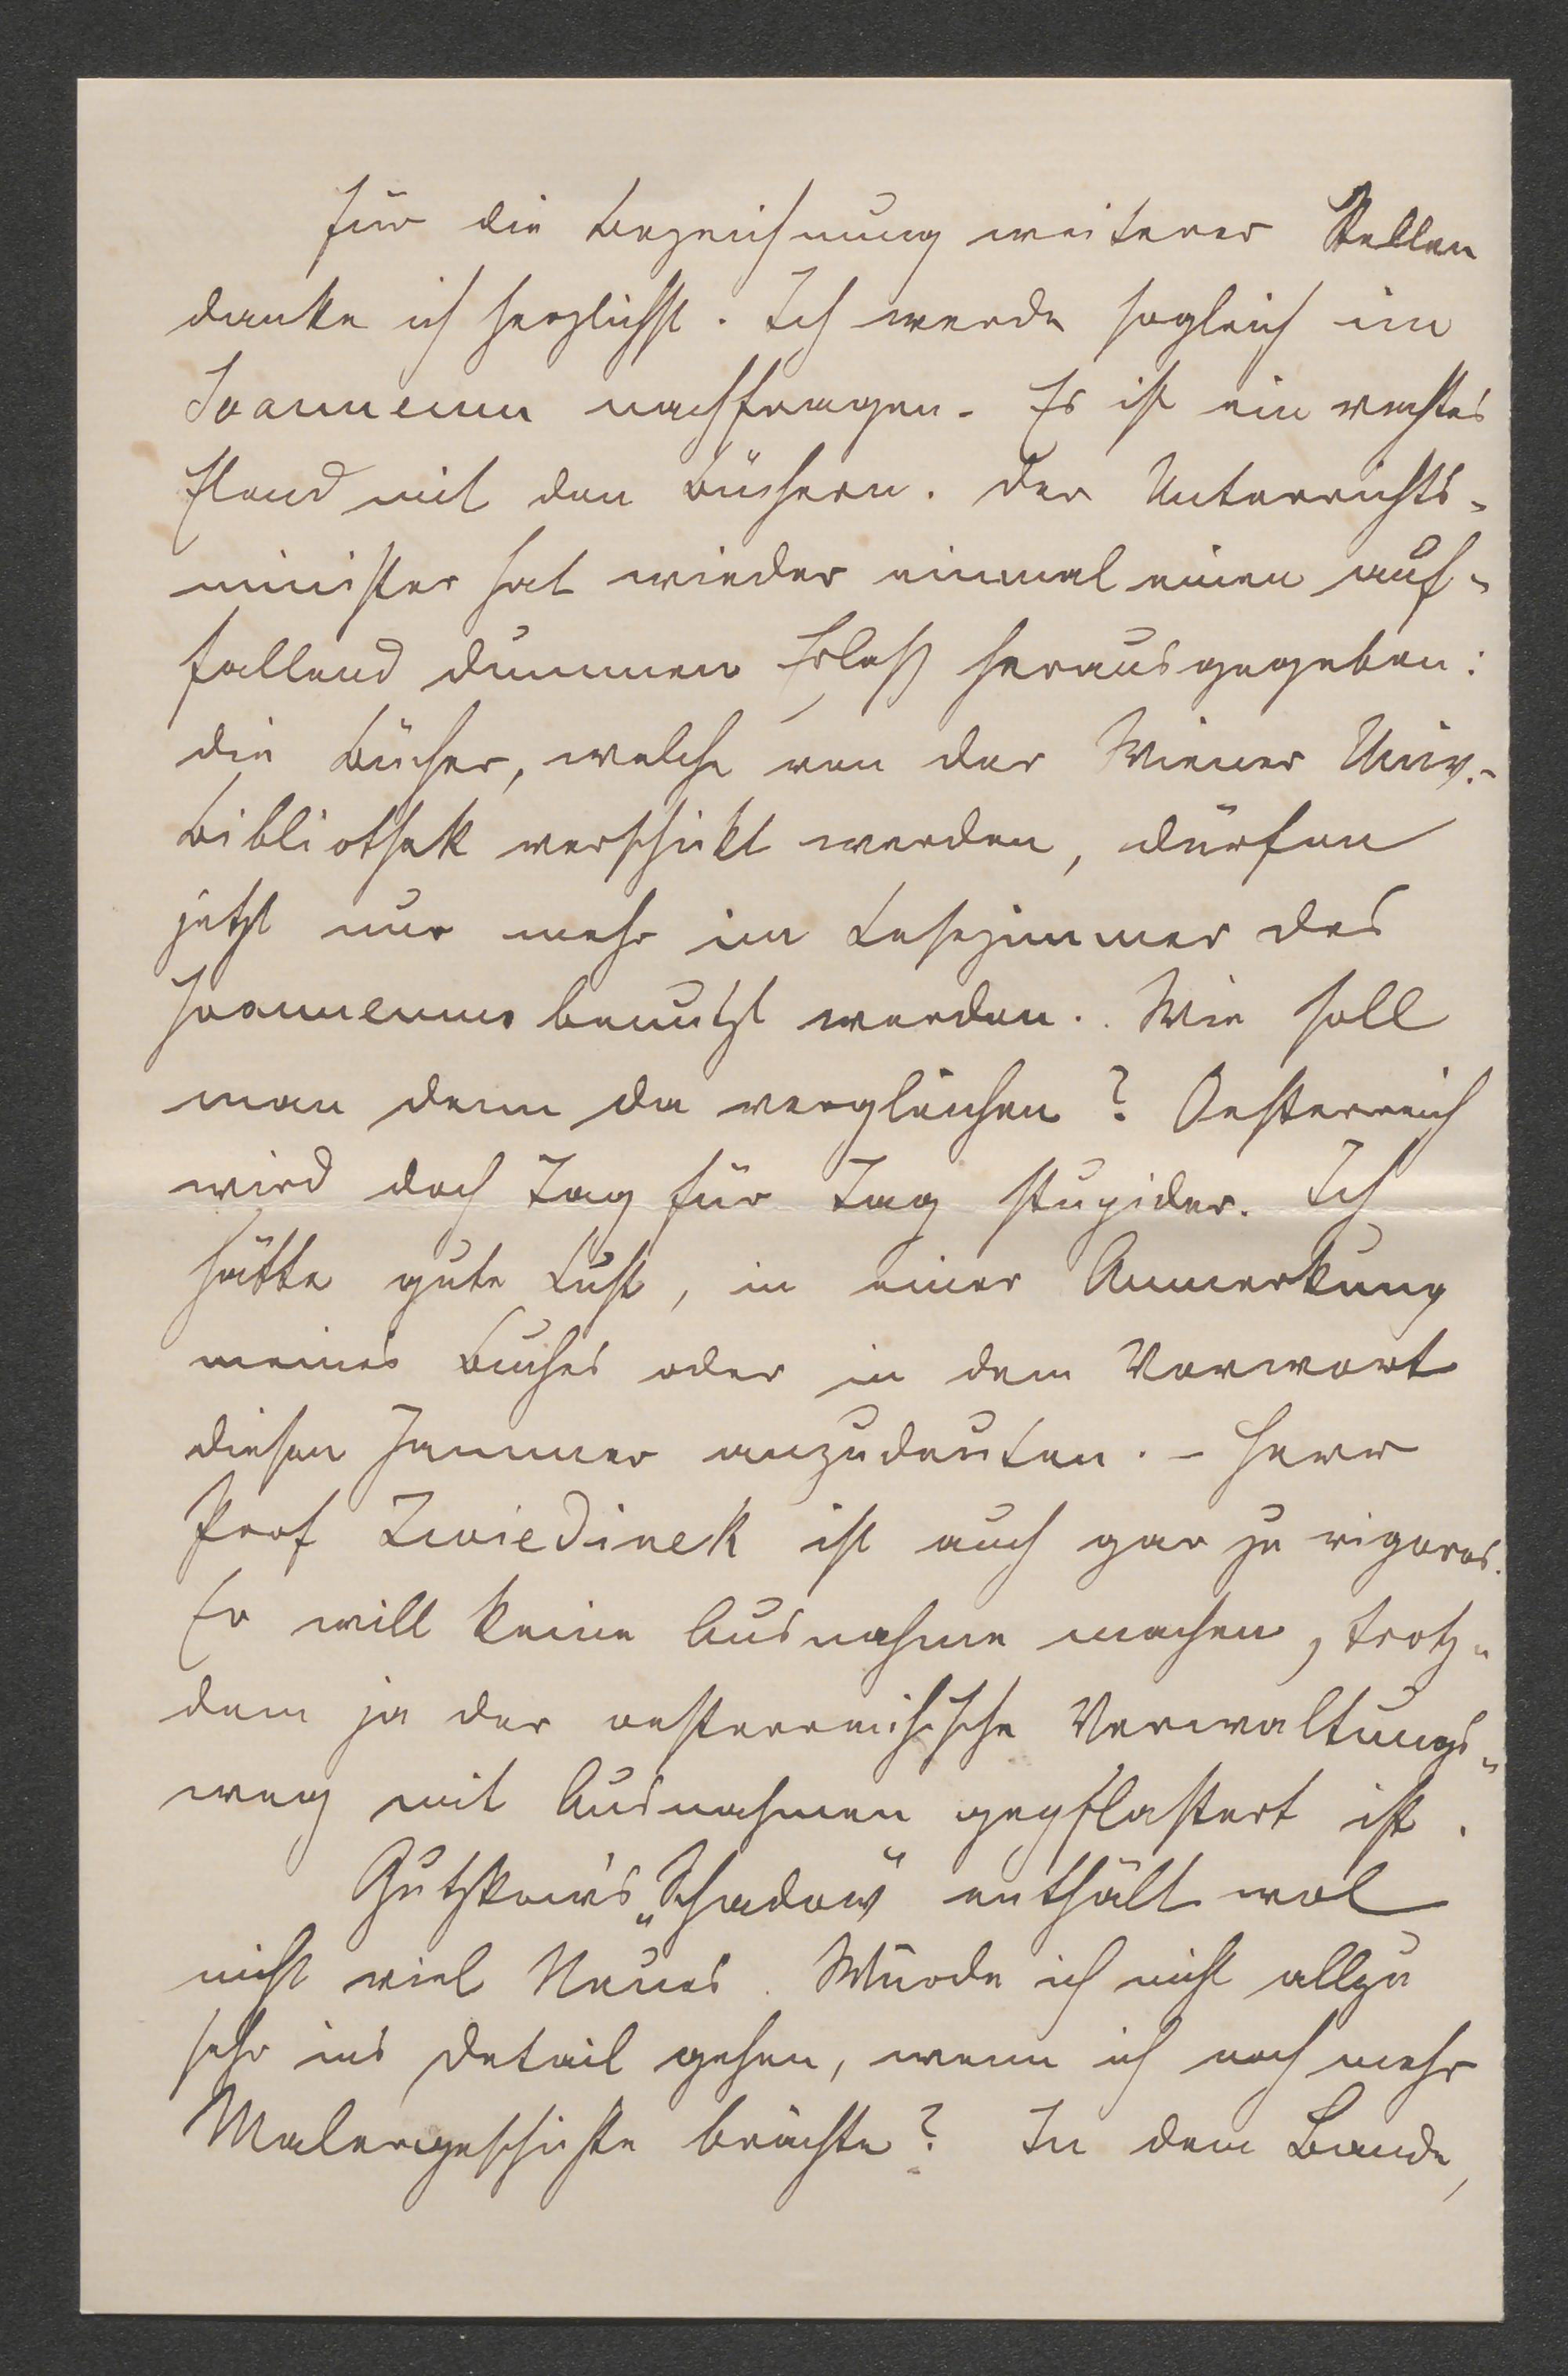 Für die Bezeichnung weiterer Stellen
danke ich herzlichst. Ich werde sogleich im
Joanneum nachfragen. Es ist ein rechtes
Elend mit den Büchern. Der Unterrichts-
minister hat wieder einmal einen auf-
fallend dummen Erlaß herausgegeben:
die Bücher, welche von der Wiener Univ.-
Bibliothek verschickt werden, dürfen
jetzt nur mehr im Lesezimmer des
Joanneums benutzt werden. Wie soll
man denn da vergleichen? Oesterreich
wird doch Tag für Tag stupider. Ich
hätte gute Lust, in einer Anmerkung
meines Buches oder in dem Vorwort
diesen Jammer anzudeuten. – Herr
Prof Zwiedinek ist auch gar zu rigoros.
Er will keine Ausnahme machen, trotz-
dem ja der oesterreichische Verwaltungs-
weg mit Ausnahmen gepflastert ist.
Gutzkow's „Schadow“ enthält wol
nicht viel Neues. Würde ich nicht allzu
sehr ins Detail gehen, wenn ich noch mehr
Malergeschichte brächte? In dem Bande,